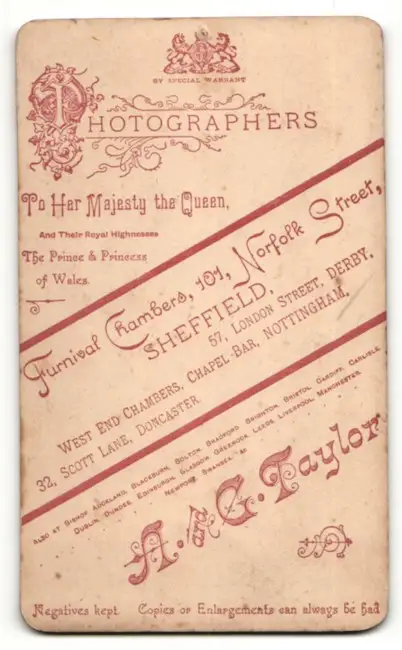 BY SPECIAL WARRANT
PHOTOGRAPHERS
To Her Majesty the Queen,
And Their Royal Highnesses
The Prince & Princess
of Wales.
Furnival Chambers, 101, Norfolk Street,
SHEFFIELD.
57, LONDON STREET, DERBY,
WEST END CHAMBERS, CHAPEL-BAR, NOTTINGHAM,
32, SCOTT LANE, DONCASTER.
ALSO AT BISHOP AUCKLAND, BLACKBURN, BOLTON, BRADFORD, BRIGHTON, BRISTOL, CARDIFF, CARLISLE,
DUBLIN, DUNDEE, EDINBURGH, GLASGOW, GREENOCK, LEEDS, LIVERPOOL, MANCHESTER,
NEWPORT, SWANSEA, &c
A. and G. Taylor
Negatives kept. Copies or Enlargements can always be had